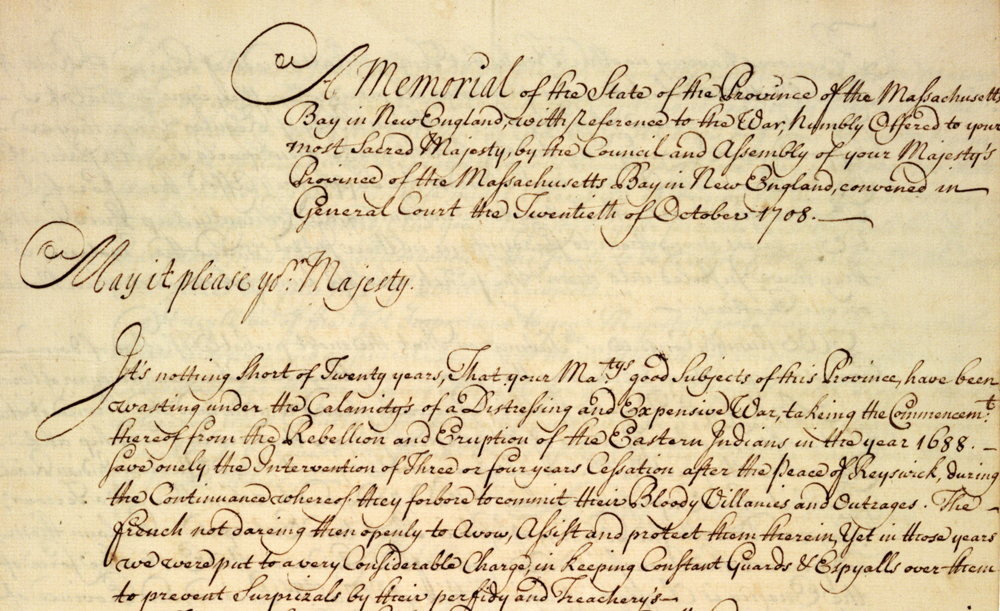 A Memorial of the State of the Province of the Massachusetts
Bay in New England, with Reference to the War, Humbly Offered to your
most Sacred Majesty, by the Council and Assembly of your Majesty's
Province of the Massachusetts Bay in New England, convened in
General Court the Twentieth of October 1708.
May it please yor. Majesty.
It's nothing short of Twenty years, That your Matys good Subjects of this Province, have been
wasting under the Calamity's of a Distressing and Expensive War, takeing the Commencemt.
thereof from the Rebellion and Eruption of the Eastern Indians in the year 1688.
save onely the Intervention of Three or four years Cessation after the Peace of Reyswick, during
the Continuance whereof they forbore to commit their Bloody Villanies and Outrages. The
french not dareing then openly to Avow, Assist and protect them therein, Yet in those years
we were put to a very Considerable Charge, in keeping Constant Guards & Espyalls over them
to prevent Surprizals by their perfidy and Treachery's